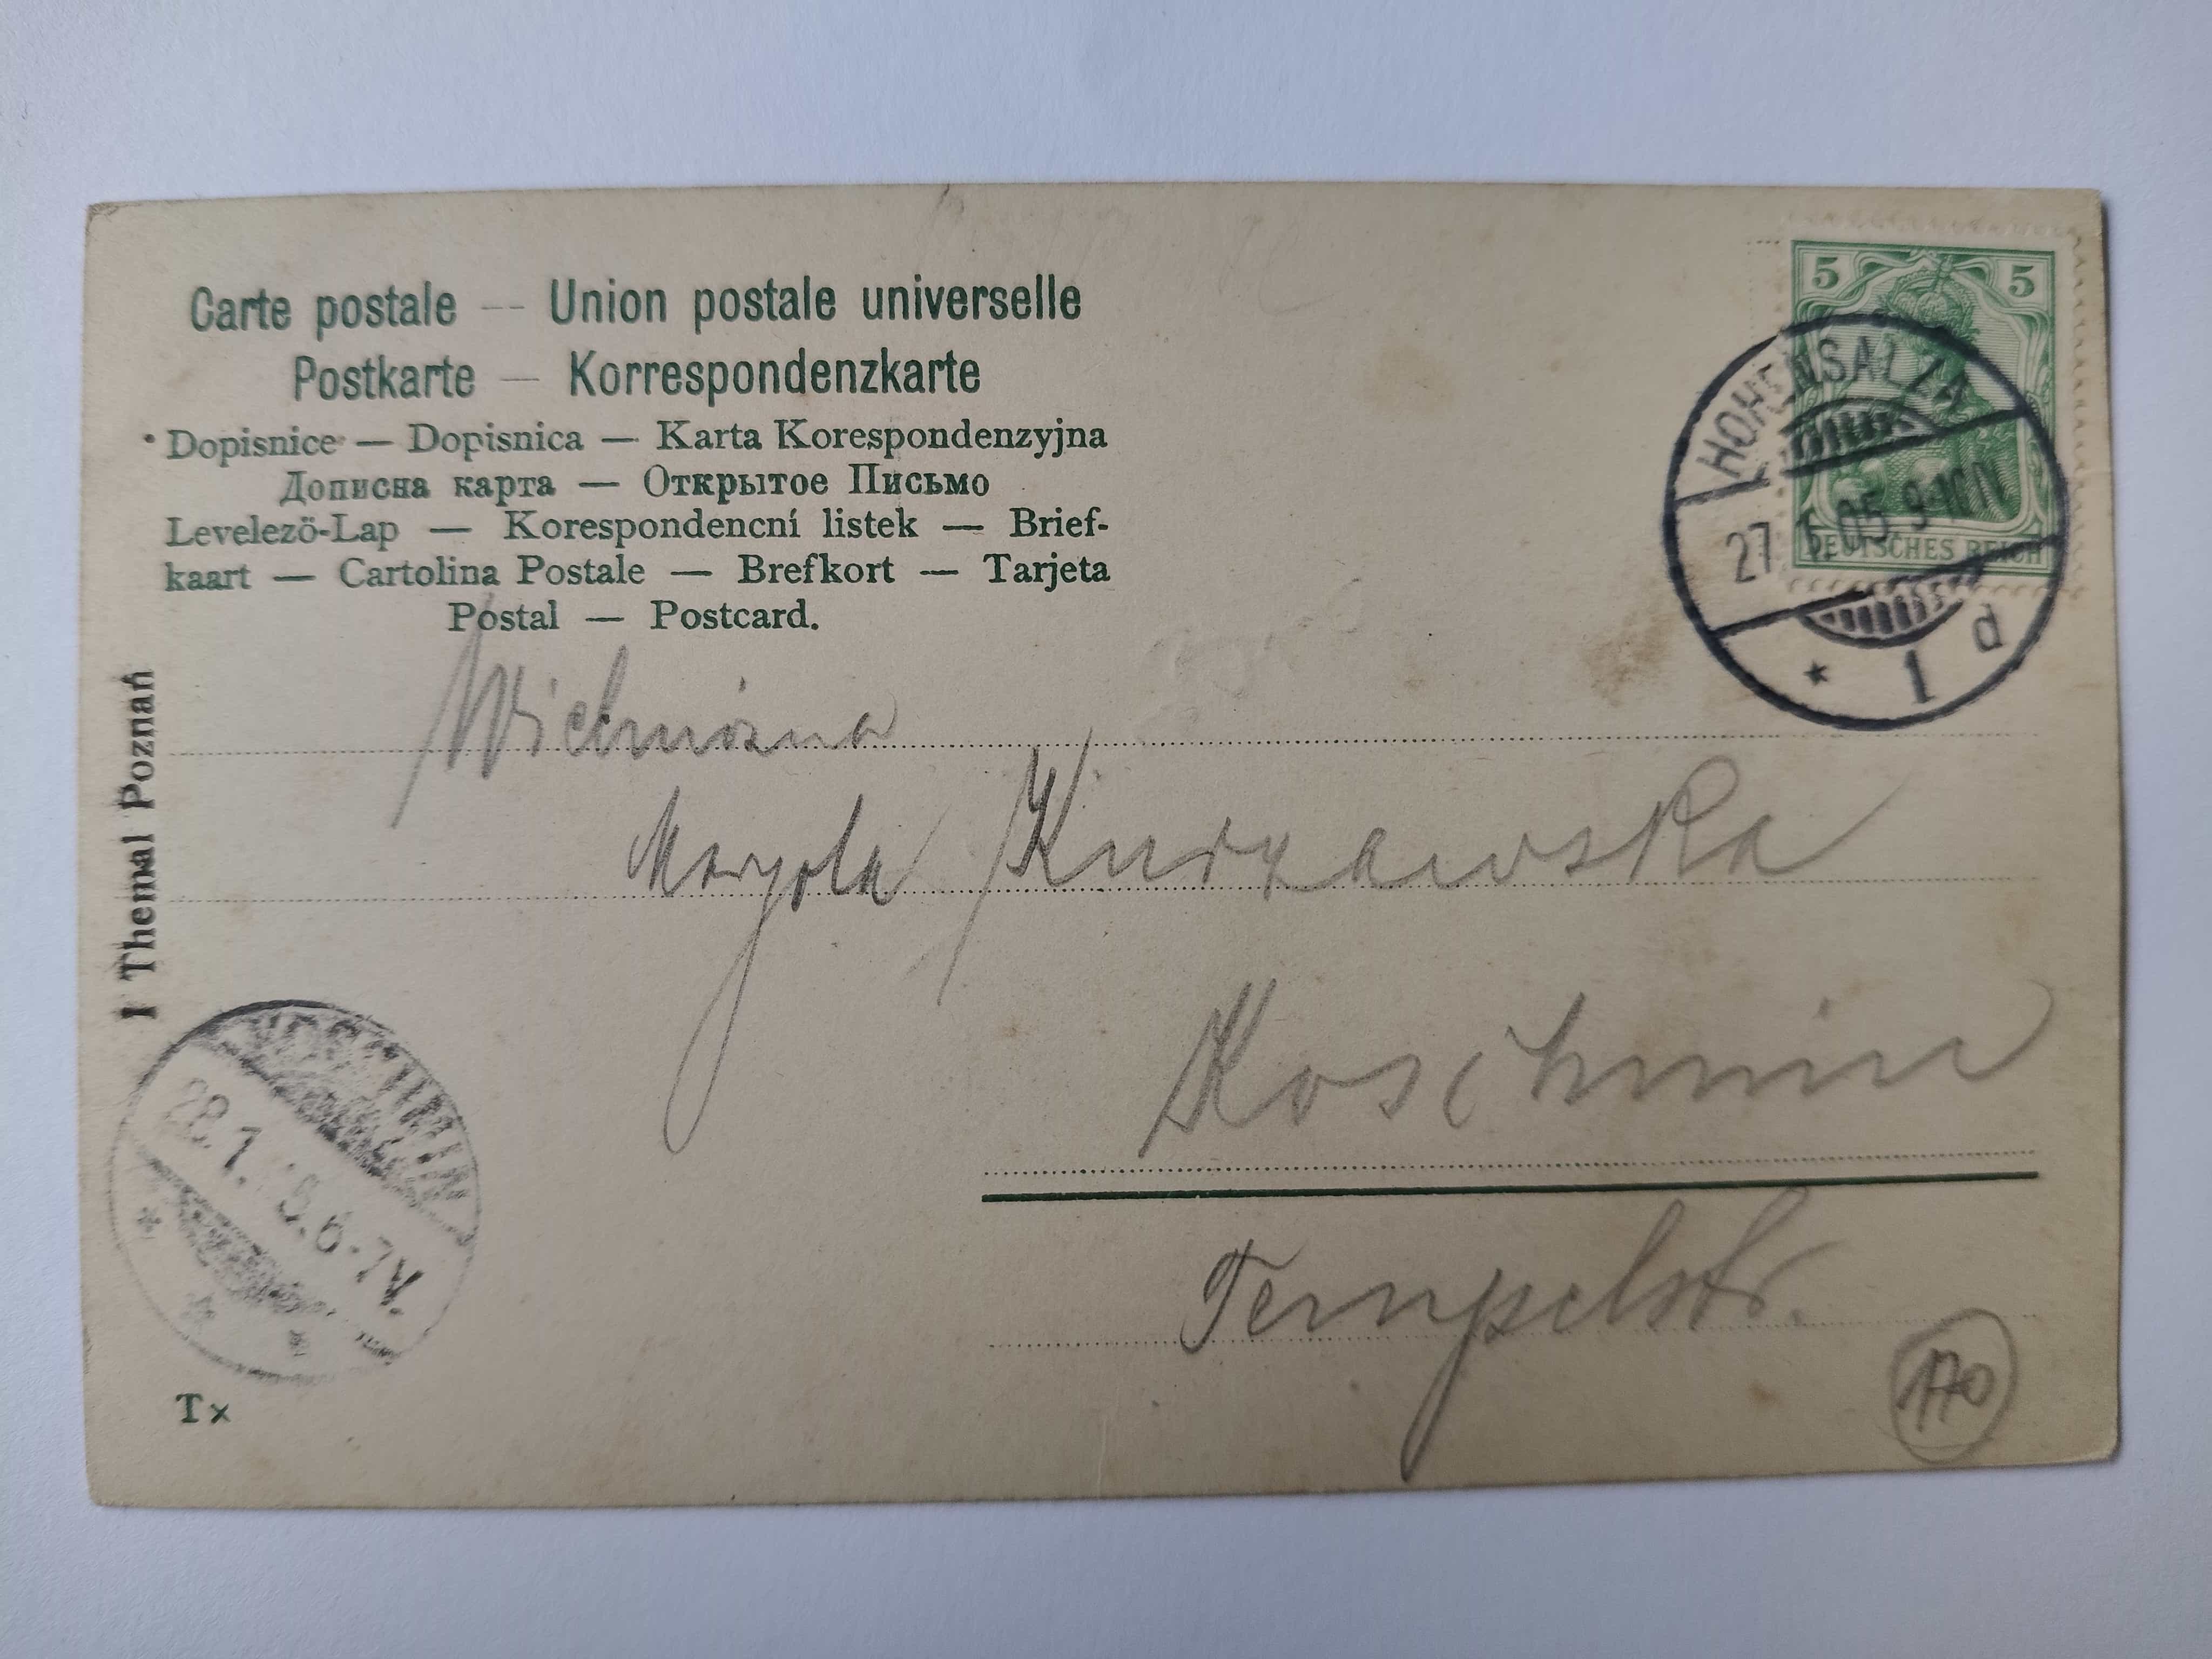 Carte postale — Union postale universelle
Postkarte — Korrespondenzkarte
Dopisnice — Dopisnica — Karta Korespondenzyjna
Дописна карта — Открытое Письмо
Levelezö-Lap — Korespondencní listek — Brief-
kaart — Cartolina Postale — Brefkort — Tarjeta
Postal — Postcard.
5 5
DEUTSCHES REICH
HOHENSALZA
27 1 05 9-10 N
* 1 d
Wielmożna
Maryola Kurzawska
Koschmin
Tempelstr.
170
I Themal Poznań
KOSCHMIN
28.1. 5.6-7V.
Tx